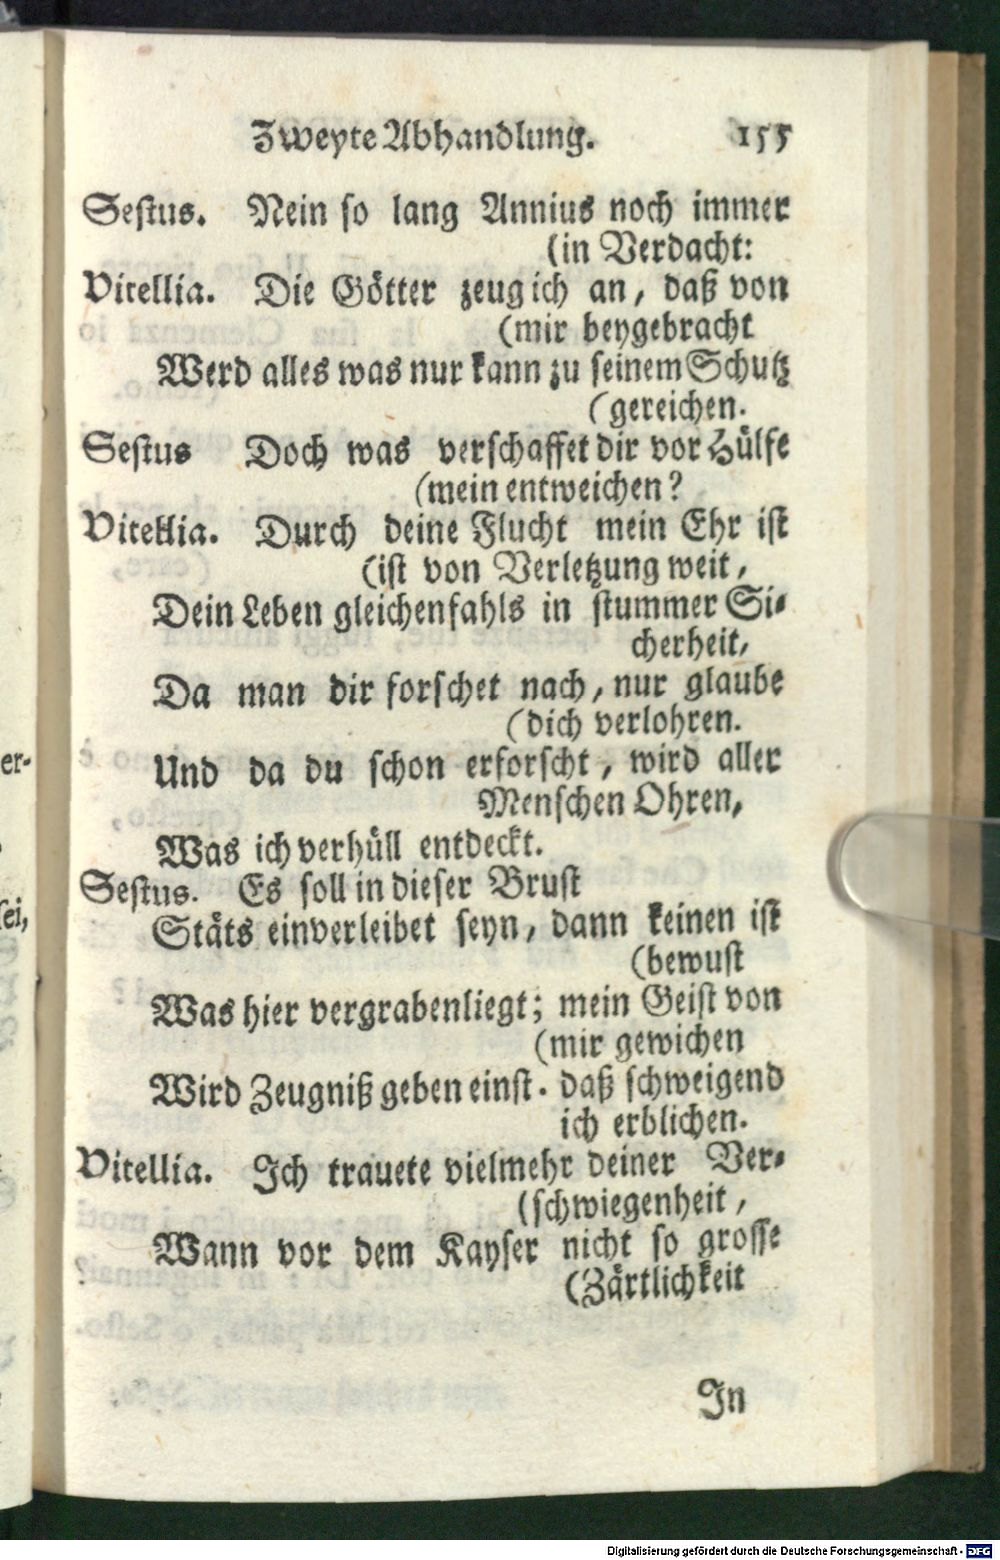 Zweyte Abhandlung. 155
Sestus. Nein so lang Annius noch immer
(in Verdacht:
Vitellia. Die Götter zeug ich an, daß von
(mir beygebracht
Werd alles was nur kann zu seinem Schutz
(gereichen.
Sestus Doch was verschaffet dir vor Hülfe
(mein entweichen?
Vitellia. Durch deine Flucht mein Ehr ist
(ist von Verletzung weit,
Dein Leben gleichenfahls in stummer Si-
cherheit,
Da man dir forschet nach, nur glaube
(dich verlohren.
Und da du schon erforscht, wird aller
Menschen Ohren,
Was ich verhüll entdeckt.
Sestus. Es soll in dieser Brust
Stäts einverleibet seyn, dann keinen ist
(bewust
Was hier vergrabenliegt; mein Geist von
(mir gewichen
Wird Zeugniß geben einst. daß schweigend
ich erblichen.
Vitellia. Ich trauete vielmehr deiner Ver-
(schwiegenheit,
Wann vor dem Kayser nicht so grosse
(Zärtlichkeit
In
er-
sei,
Digitalisierung gefördert durch die Deutsche Forschungsgemeinschaft - DFG